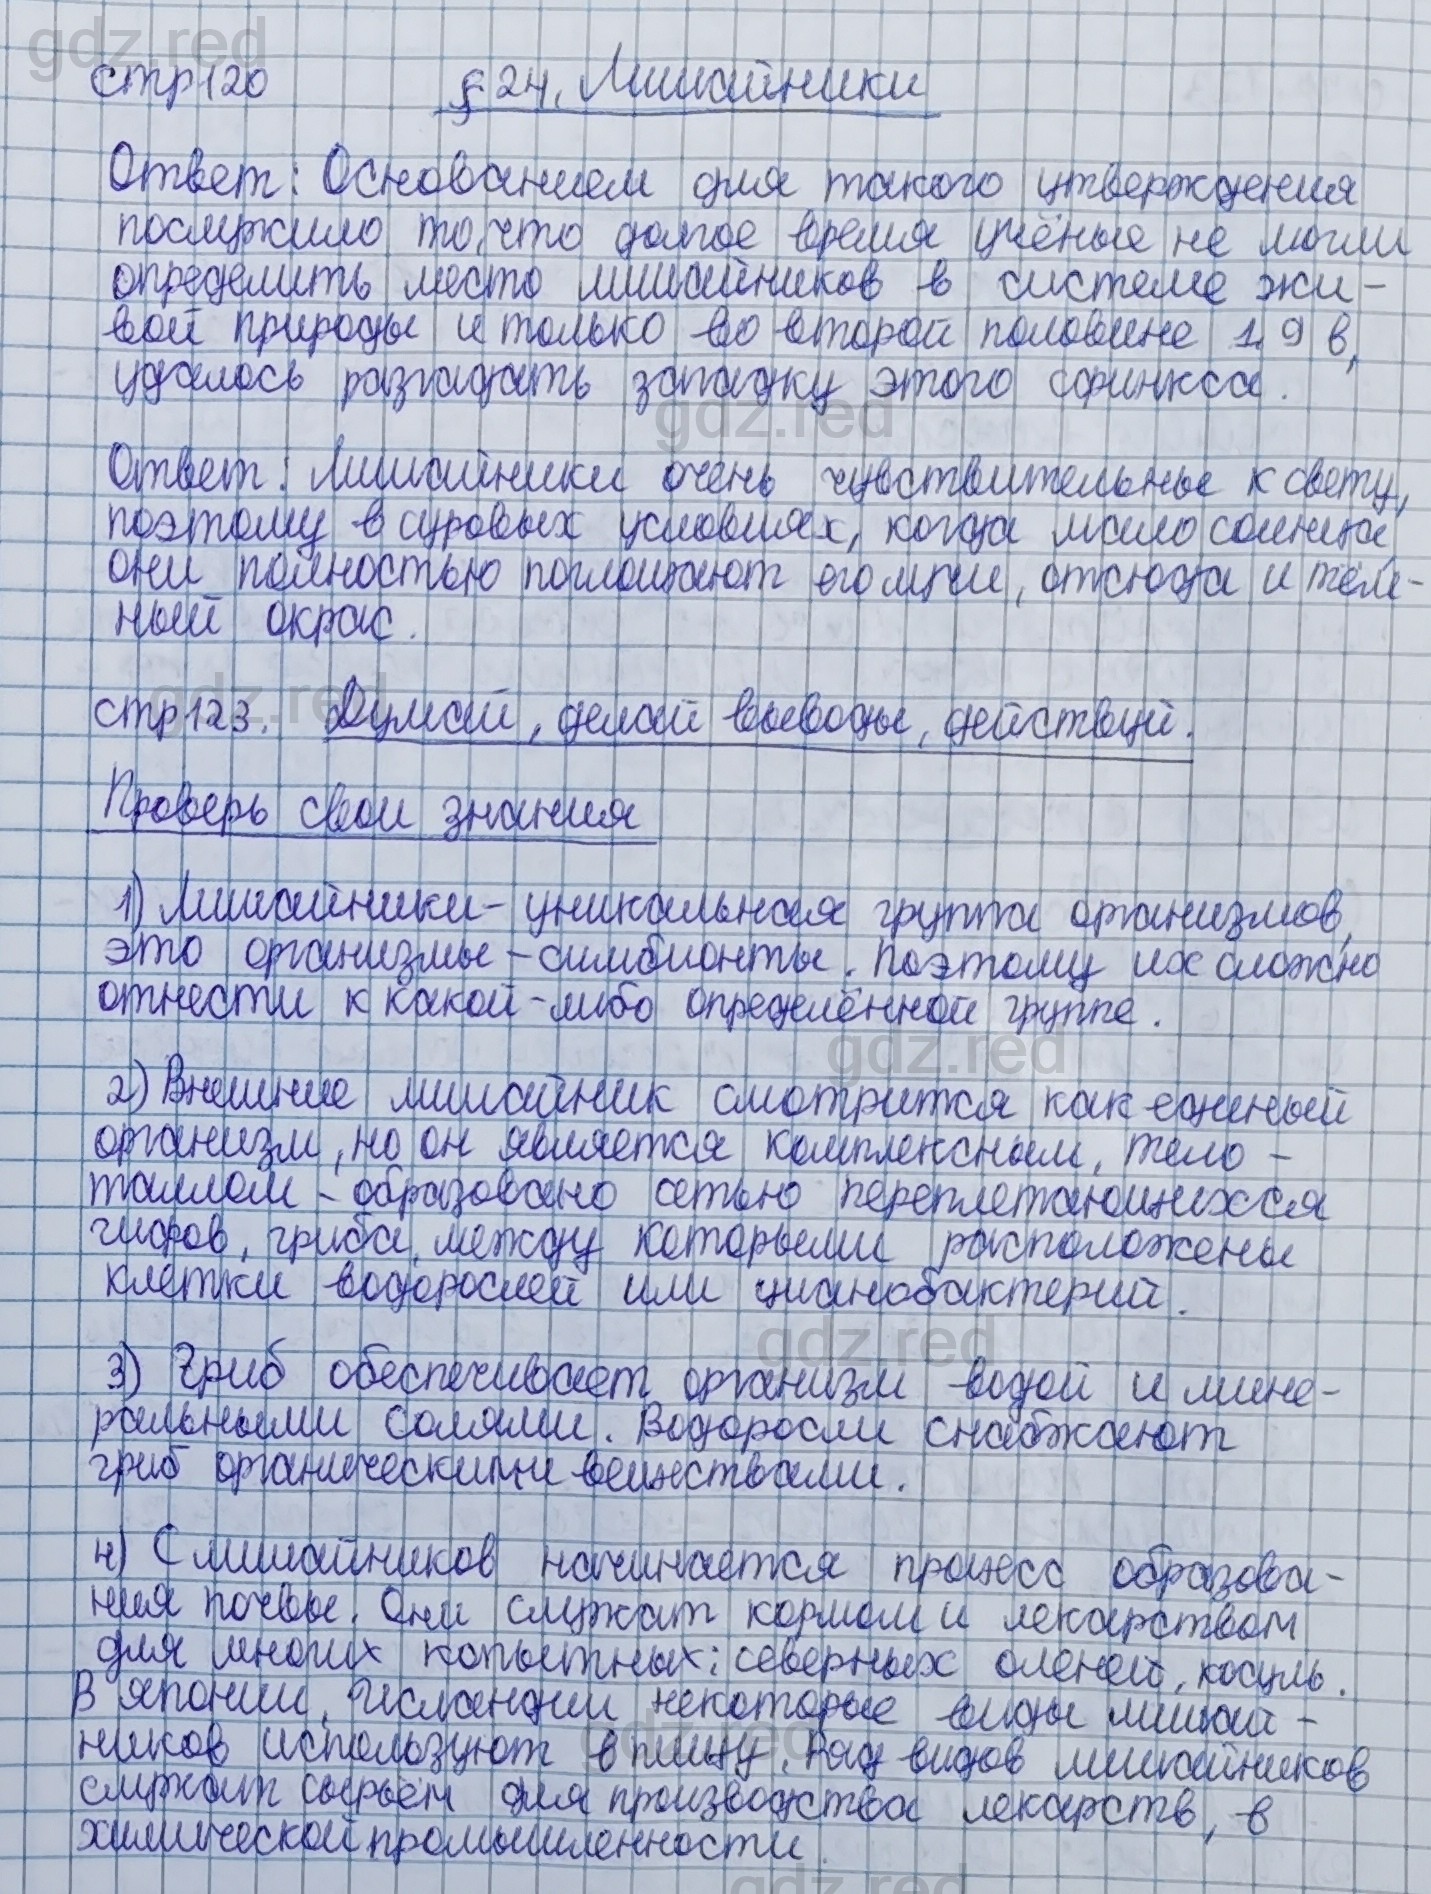 стр 120 § 24. Лишайники
Ответ: Основанием для такого утверждения
послужило то, что долгое время учёные не могли
определить место лишайников в системе жи-
вой природы и только во второй половине 19 в,
удалось разгадать загадку этого сфинкса.
Ответ: Лишайники очень чувствительные к свету,
поэтому в суровых условиях, когда мало солнца,
они полностью поглощают его лучи, отсюда и тём-
ный окрас.
стр 123. Думай, делай выводы, действуй.
Проверь свои знания
1) Лишайники - уникальная группа организмов,
это организмы - симбионты. Поэтому их сложно
отнести к какой-либо определённой группе.
2) Внешние лишайник смотрится как единый
организм, но он является комплексным, тело -
таллом - образовано сетью переплетающихся
гифов, гриба, между которыми расположены
клетки водорослей или цианобактерий.
3) Гриб обеспечивает организм водой и мине-
ральными солями. Водоросли снабжают
гриб органическими веществами.
4) С лишайников начинается процесс образова-
ния почвы. Они служат кормом и лекарством
для многих копытных: северных оленей, косуль.
В Японии, Исландии некоторые виды лишай-
ников используют в пищу. Ряд видов лишайников
служат сырьём для производства лекарств, в
химической промышленности.
gdz.red
gdz.red
gdz.red
gdz.red
gdz.red
gdz.red
gdz.red